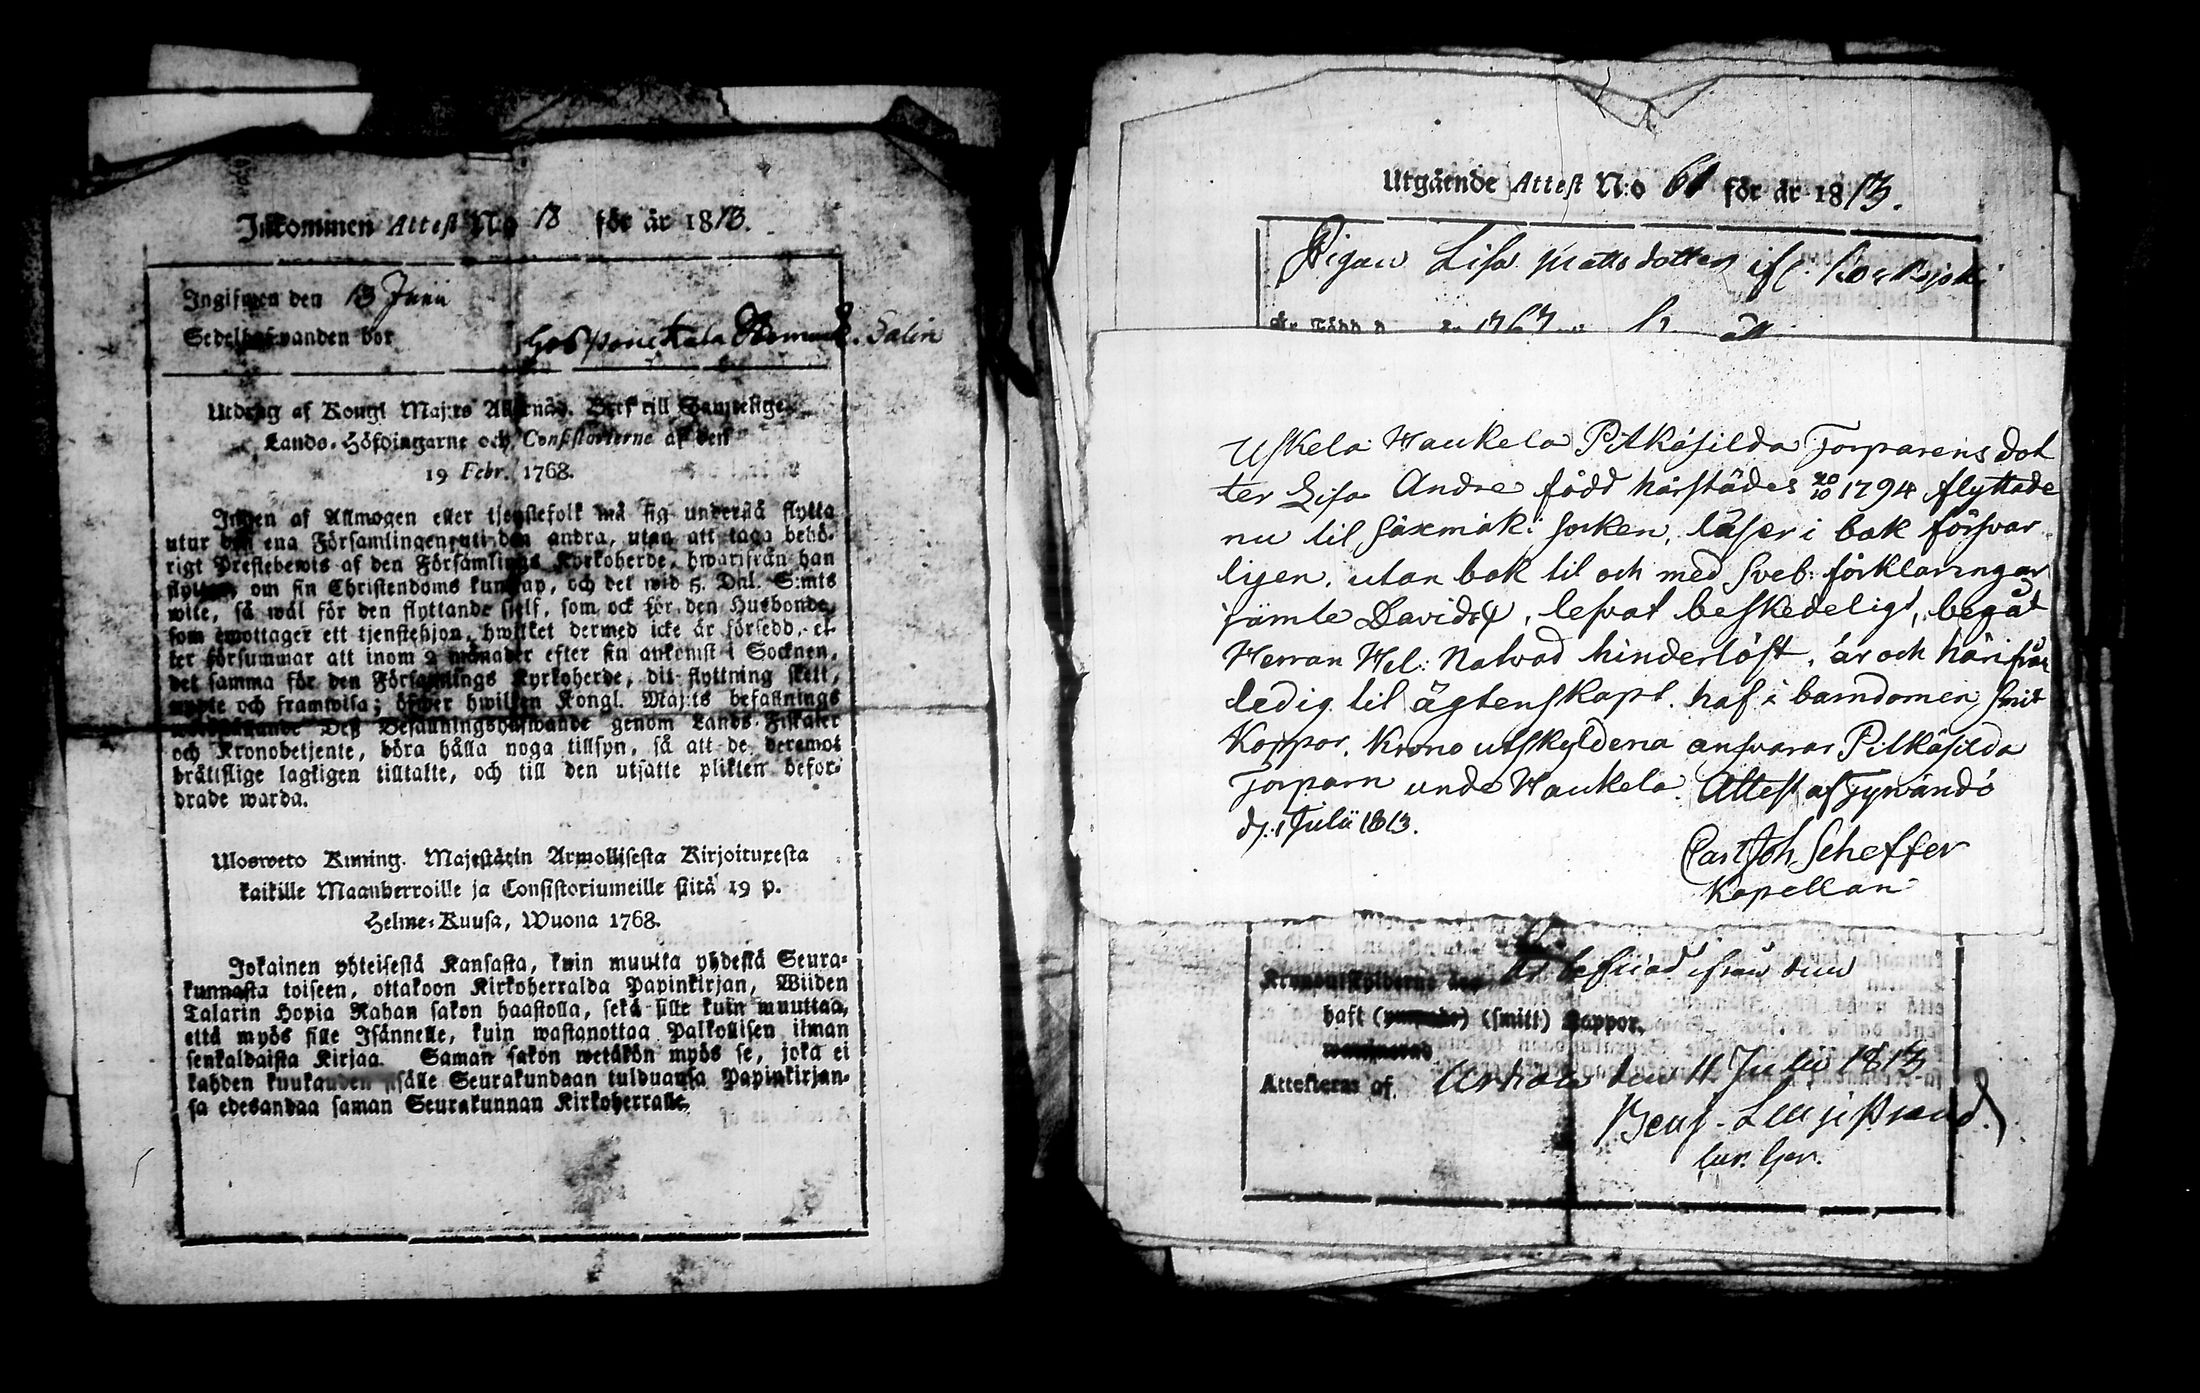 Inkommen Attest N:o 18 för år 1813.
Ingifwen den 13 Junii
Sedelhafwanden bor Salin
Utdrag af Kongl Maj:ts Allernåd. Bref till Samtelige
Lands-Höfdingarne och Consistorierne af den
19 Febr. 1768.
Ingen af Allmogen eller tjenstefolk må sig understå flytta
utur den ena Församlingen uti den andra, utan att taga behö-
rigt Prestebewis af den Församlings Kyrkoherde, hwarifrån han
flyttar, om sin Christendoms kunskap, och det wid 5. Dal. S:mts
wite, så wäl för den flyttande sjelf, som ock för den Husbonde,
som emottager ett tjenstehjon, hwilket dermed icke är försedd, el-
ler försummar att inom 2 månader efter sin ankomst i Socknen,
det samma för den Församlings Kyrkoherde, dit flyttning skett,
uppte och framwisa; öfwer hwilken Kongl. Maj:ts befallnings
Deß Befallningshafwande genom Lands-Fiskaler
och Kronobetjente, böra hålla noga tillsyn, så att de deremot
brättslige lagligen tilltalte, och till den utsatte plikten befor-
drade warda.
Ulosweto Kuning. Majestätin Armollisesta Kirjoituxesta
kaikille Maanherroille ja Consistoriumeille siitä 19 p.
Helme-Kuusa, Wuona 1768.
Jokainen yhteisestä Kansasta, kuin muutta yhdestä Seura-
kunnasta toiseen, ottakoon Kirkoherralda Papinkirjan, Wiiden
Talarin Hopia Rahan sakon haastolla, sekä sille kuin muuttaa,
että myös sille Isännelle, kuin wastanottaa Palkollisen ilman
senkaldaista Kirjaa. Saman sakon wetäkön myös se, joka ei
kahden kuukauden sisälle Seurakundaan tulduansa Papinkirjan-
sa edesandaa saman Seurakunnan Kirkoherralle.
Utgående Attest N:o 61 för år 1813.
Pigan Lisa Mattsdotter ifr.
1767
Uskela Haukela Pitkäsilda Torparens dot
ter Lisa Andre född härstädes 20/10 1794 flyttade
nu til Säxmäki socken, läser i bok försvar
ligen, utan bok til och med Sveb: förklaringar
jämte Davids , lefvat beskedeligt, begåt
Herran Hel: Natvad hinderlöst, är och härifrån
ledig til ägtenskaps. haf i barndomen smit
Koppor. Krono utskyldena ansvarar Pitkäsilda
Torparn unde Haukela. Attest af Tyrvändö
d. 1 Julii 1813.
Carl Joh. Scheffer
Kapellan
Kronoutskylderne är befriad ifrån dem
haft (smitt) Koppor.
Attesteras af. den 11 Julii 1813